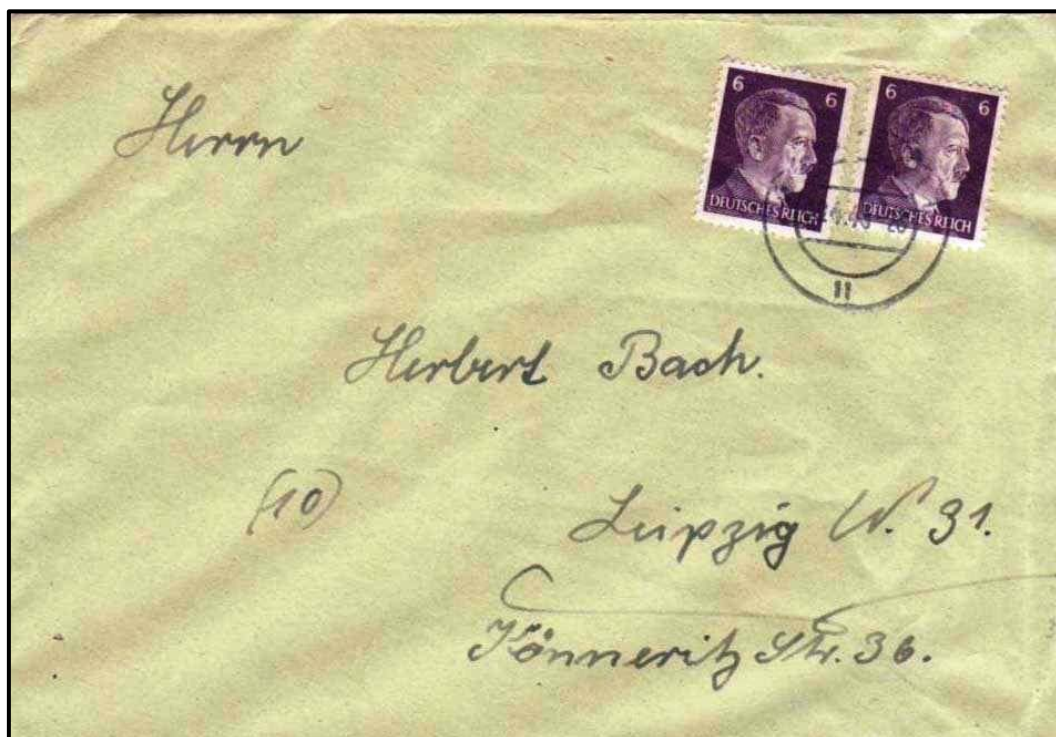 6 6 6 6
DEUTSCHES REICH DEUTSCHES REICH
II
Herrn
Herbert Bach.
(10)
Leipzig W. 31.
Könneritz Str. 36.